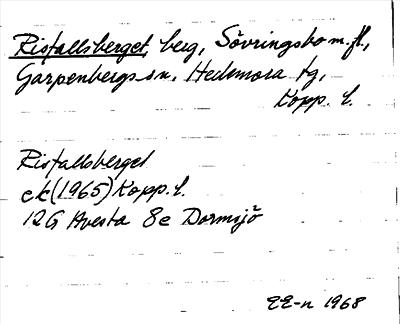 Risfallsberget, berg, Sövringsbo m.fl.,
Garpenbergs sn, Hedemora tg,
Kopp. l.
Risfallsberget
ek (1965) Kopp. l.
12G Avesta 8e Dormsjö
EE-n 1968